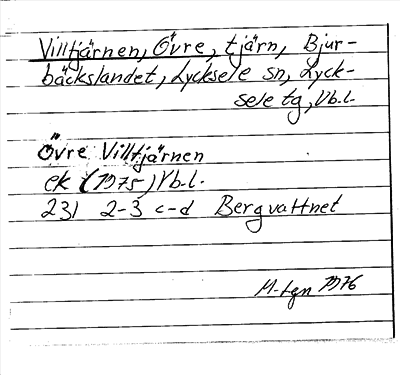 Villtjärnen, Övre, tjärn, Bjur-
bäckslandet, Lycksele sn, Lyck-
sele tg, Vb.l.
Övre Villtjärnen
ek (1975) Vb.l.
231 2-3 c-d Bergvattnet
M-tgn 1976